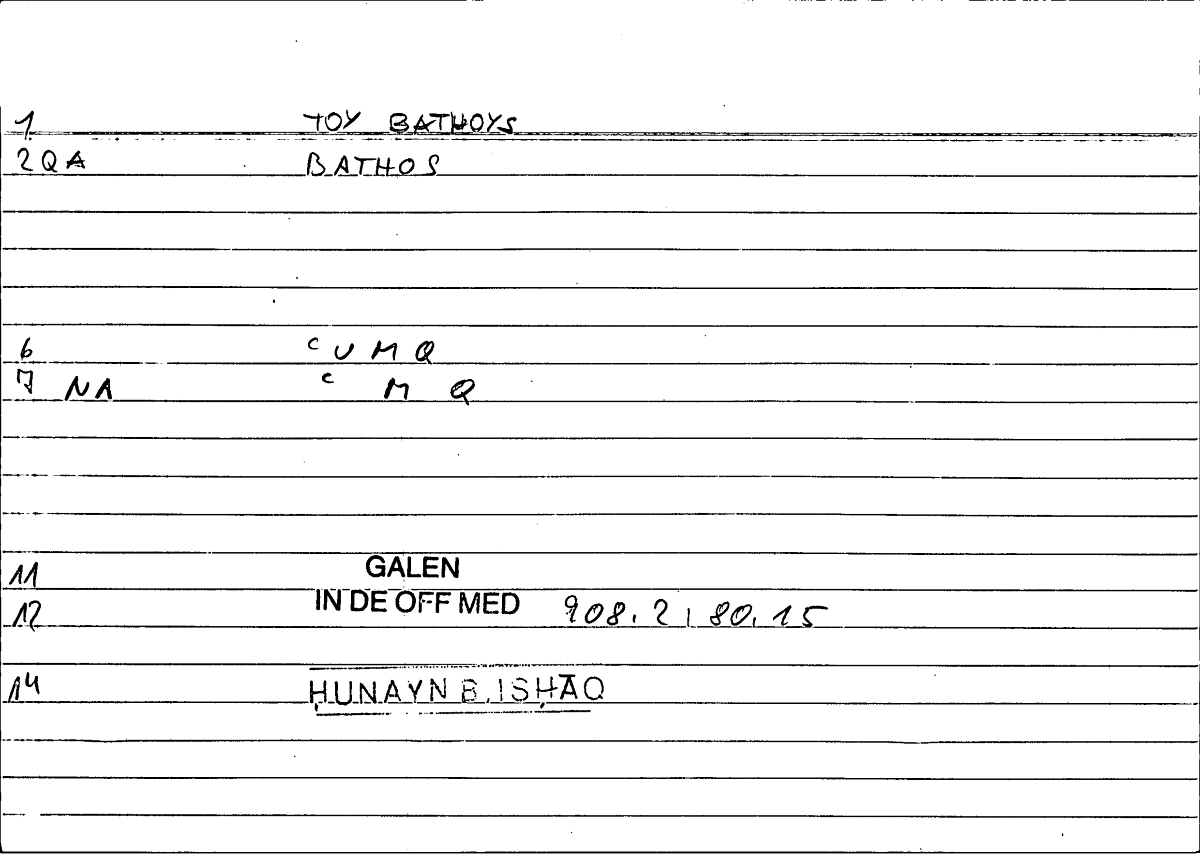 1 TOY BATHOYS
2 QA BATHOS
6 ᶜU M Q
7 NA ᶜ M Q
11 GALEN
12 IN DE OFF MED 908.2 | 80.15
14 ḤUNAYN B. ISḤĀQ